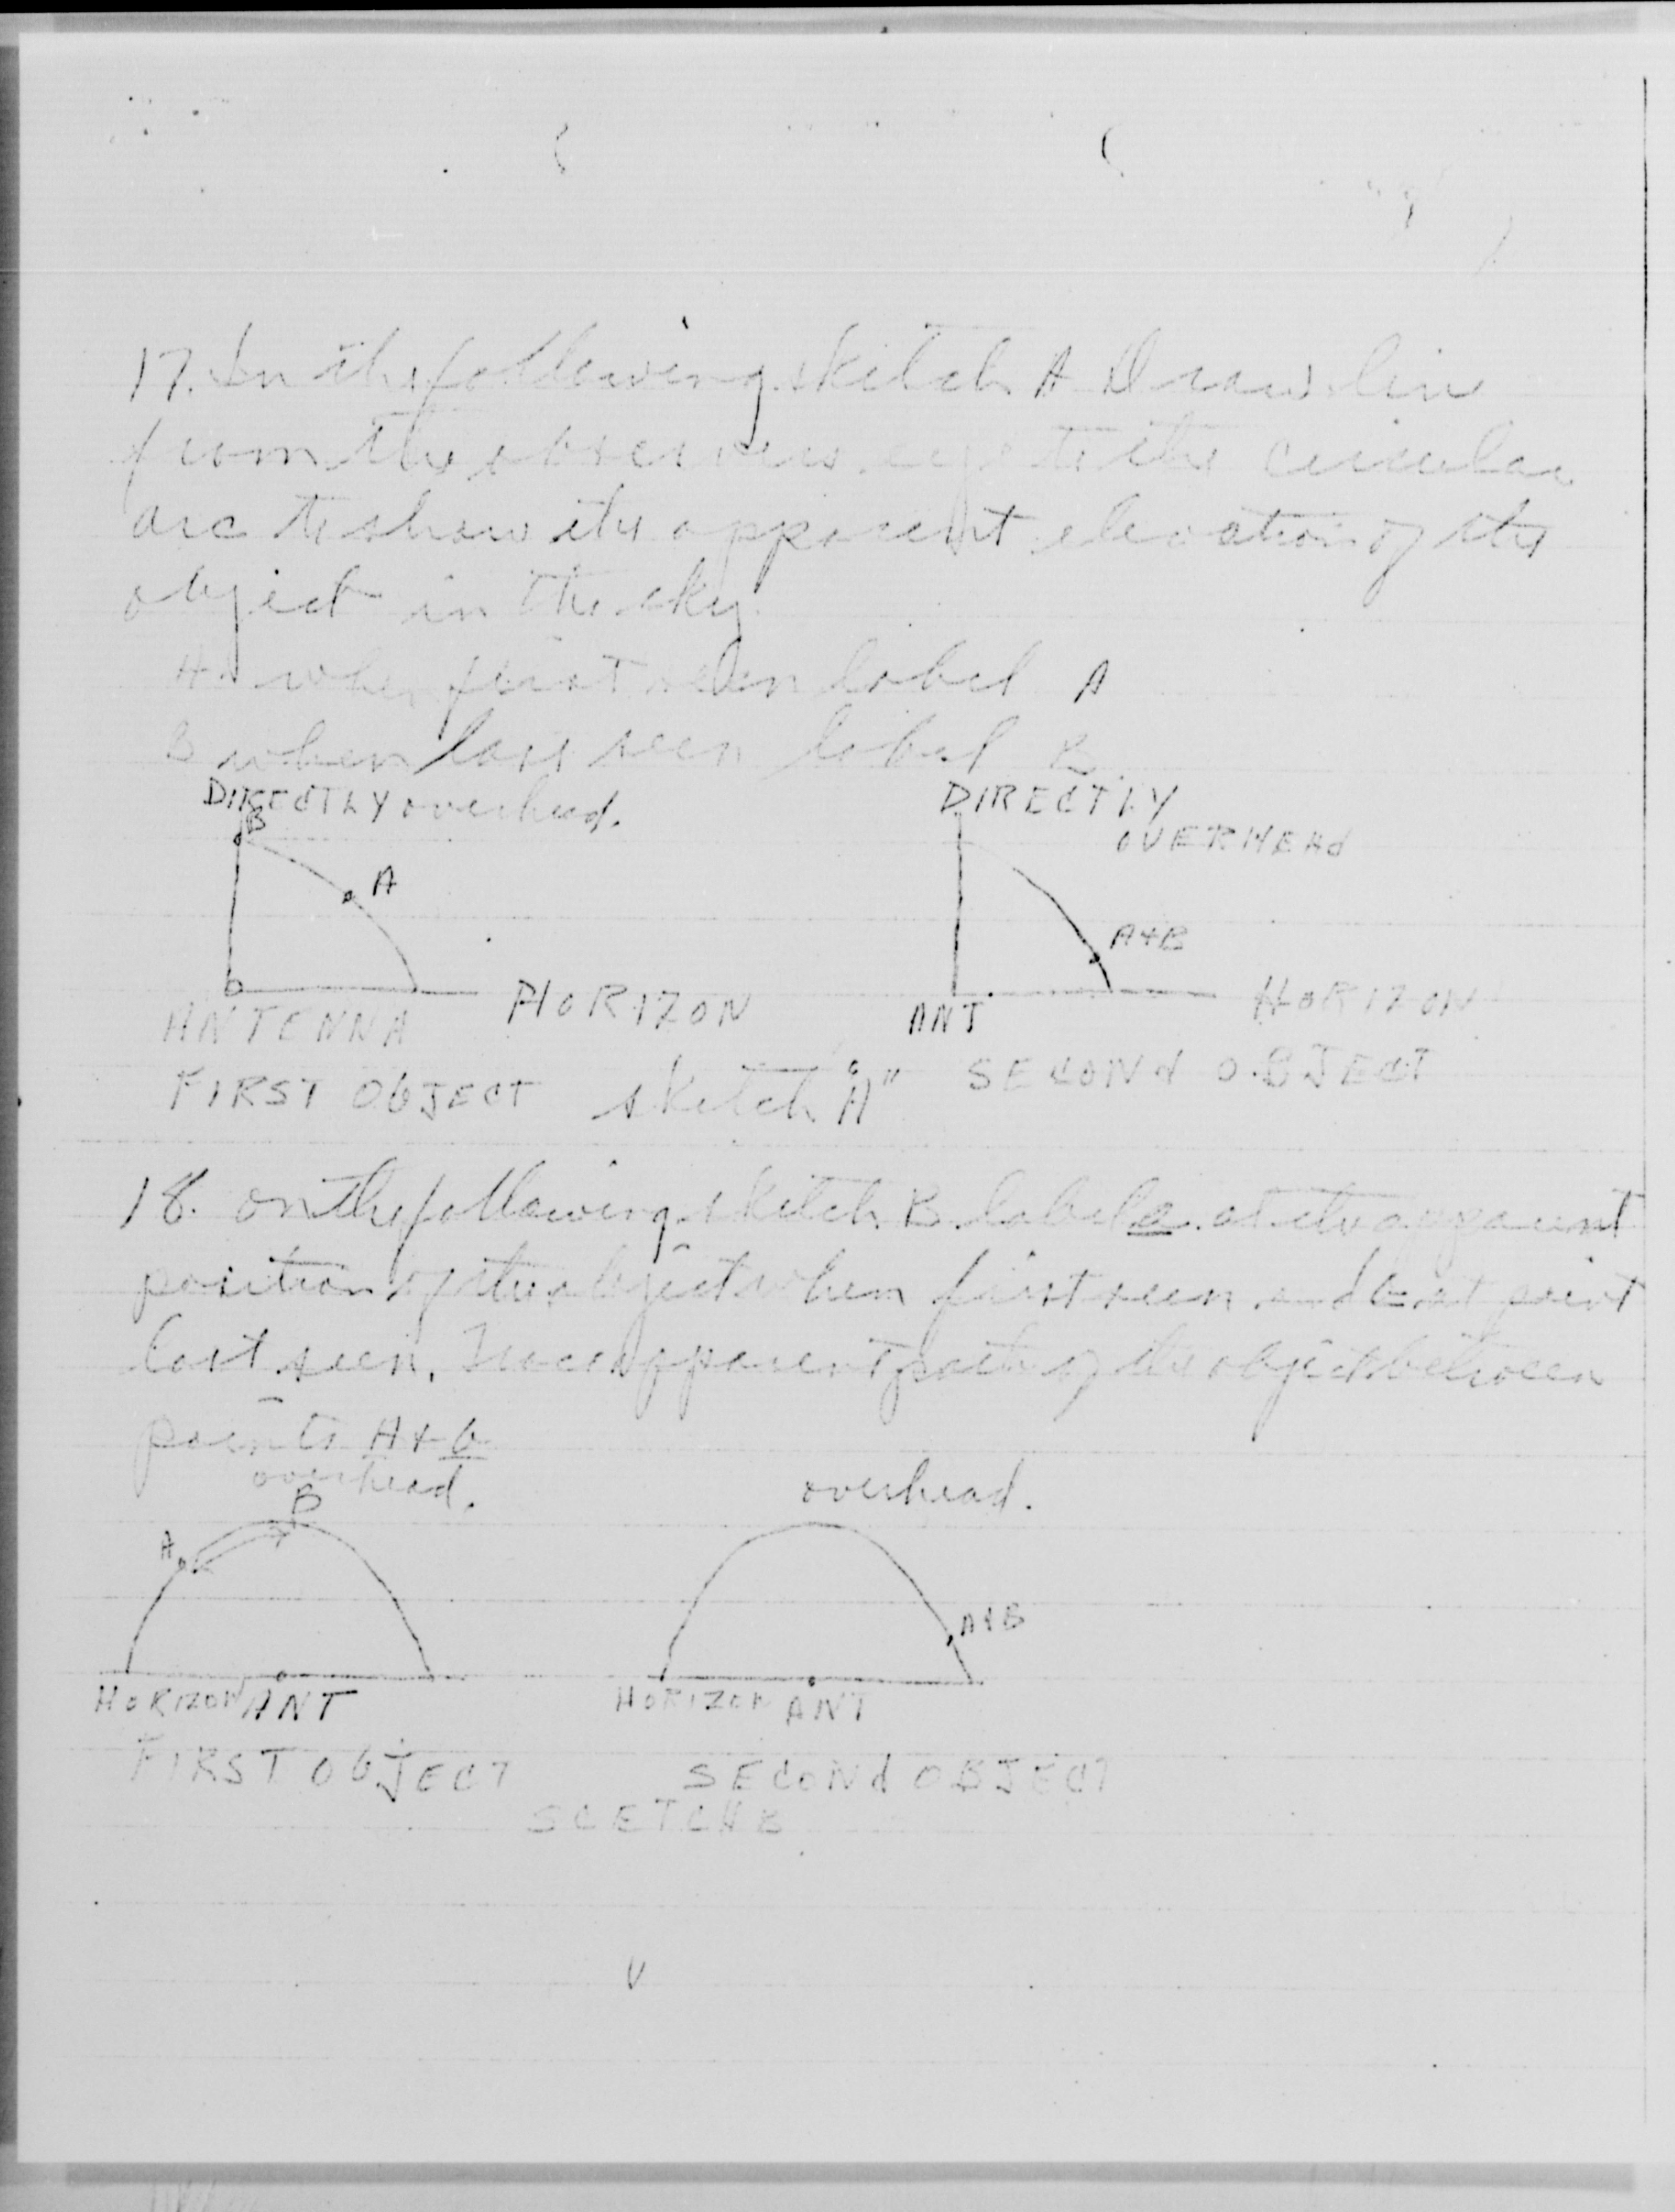 17. In the following sketch A Draw line
from the observers eye to the circular
arc to show the apparent elevation of the
object in the sky.
A when first seen label A
B when last seen label B
DIRECTLY overhead.
B
A
ANTENNA
HORIZON
FIRST ObJECT
DIRECTLY
OVERHEAd
A+B
ANT
HORIZON
SECONd OBJECT
sketch "A"
18. on the following sketch B label a at the apparent
position of the object when first seen and b at point
last seen. Trace apparent path of the object between
points A + b
overhead.
B
A
HORIZON ANT
FIRST ObJECT
overhead.
A+B
HORIZON ANT
SECONd OBJECT
SCETCH B